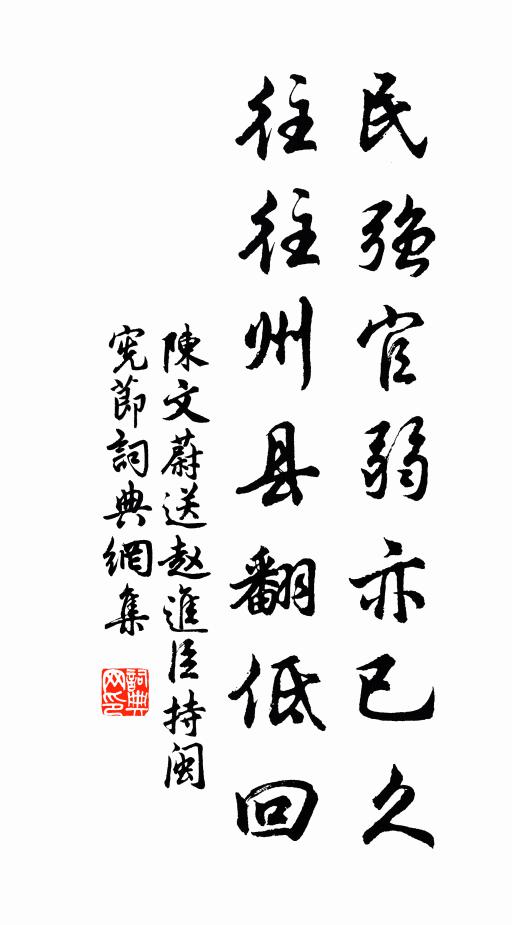 民強官弱亦已久
往往州县翻低回
陳文蔚送赵進臣持闽
宪節詞典網集
詞典网印